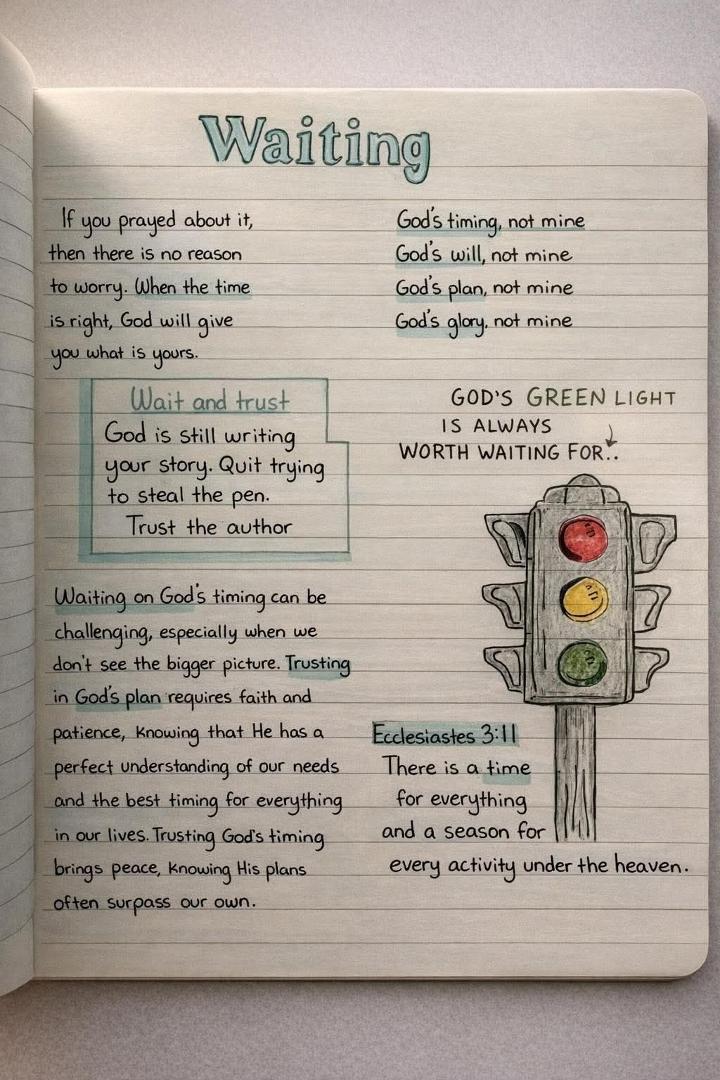 Waiting
If you prayed about it,
then there is no reason
to worry. When the time
is right, God will give
you what is yours.
God's timing, not mine
God's will, not mine
God's plan, not mine
God's glory, not mine
Wait and trust
God is still writing
your story. Quit trying
to steal the pen.
Trust the author
GOD'S GREEN LIGHT
IS ALWAYS
WORTH WAITING FOR..
Waiting on God's timing can be
challenging, especially when we
don't see the bigger picture. Trusting
in God's plan requires faith and
patience, knowing that He has a
perfect understanding of our needs
and the best timing for everything
in our lives. Trusting God's timing
brings peace, knowing His plans
often surpass our own.
Ecclesiastes 3:11
There is a time
for everything
and a season for
every activity under the heaven.